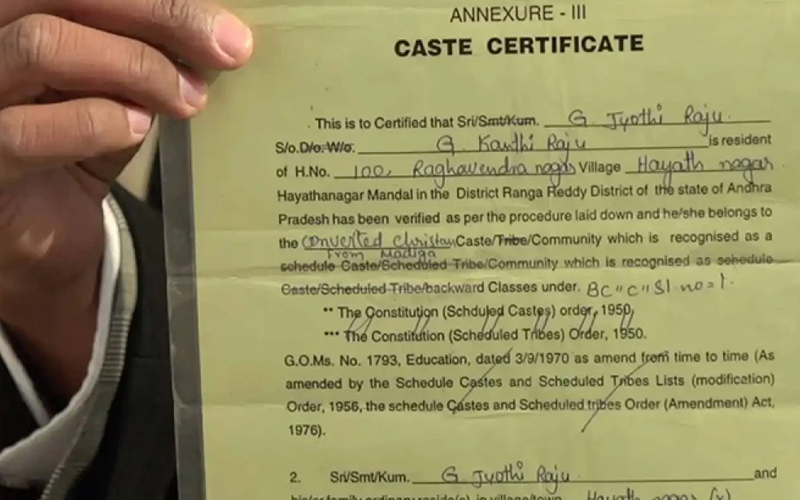 ANNEXURE - III
CASTE CERTIFICATE
This is to Certified that Sri/Smt/Kum. G. Jyothi Raju.
S/o.D/o. W/o. G. Kanthi Raju is resident
of H.No. 100, Raghavendra nagar Village Hayath nagar
Hayathanagar Mandal in the District Ranga Reddy District of the state of Andhra
Pradesh has been verified as per the procedure laid down and he/she belongs to
the Converted Christian Caste/Tribe/Community which is recognised as a
From Madiga
schedule Caste/Scheduled Tribe/Community which is recognised as schedule
Caste/Scheduled Tribe/backward Classes under. BC "C" Sl. no = 1.
** The Constitution (Schduled Castes) order, 1950,
*** The Constitution (Scheduled Tribes) Order, 1950.
G.O.Ms. No. 1793, Education, dated 3/9/1970 as amend from time to time (As
amended by the Schedule Castes and Scheduled Tribes Lists (modification)
Order, 1956, the schedule Castes and Scheduled tribes Order (Amendment) Act,
1976).
2. Sri/Smt/Kum. G Jyothi Raju. and
his/or family ordinary reside(s) in village/town Hayath nagar (v)